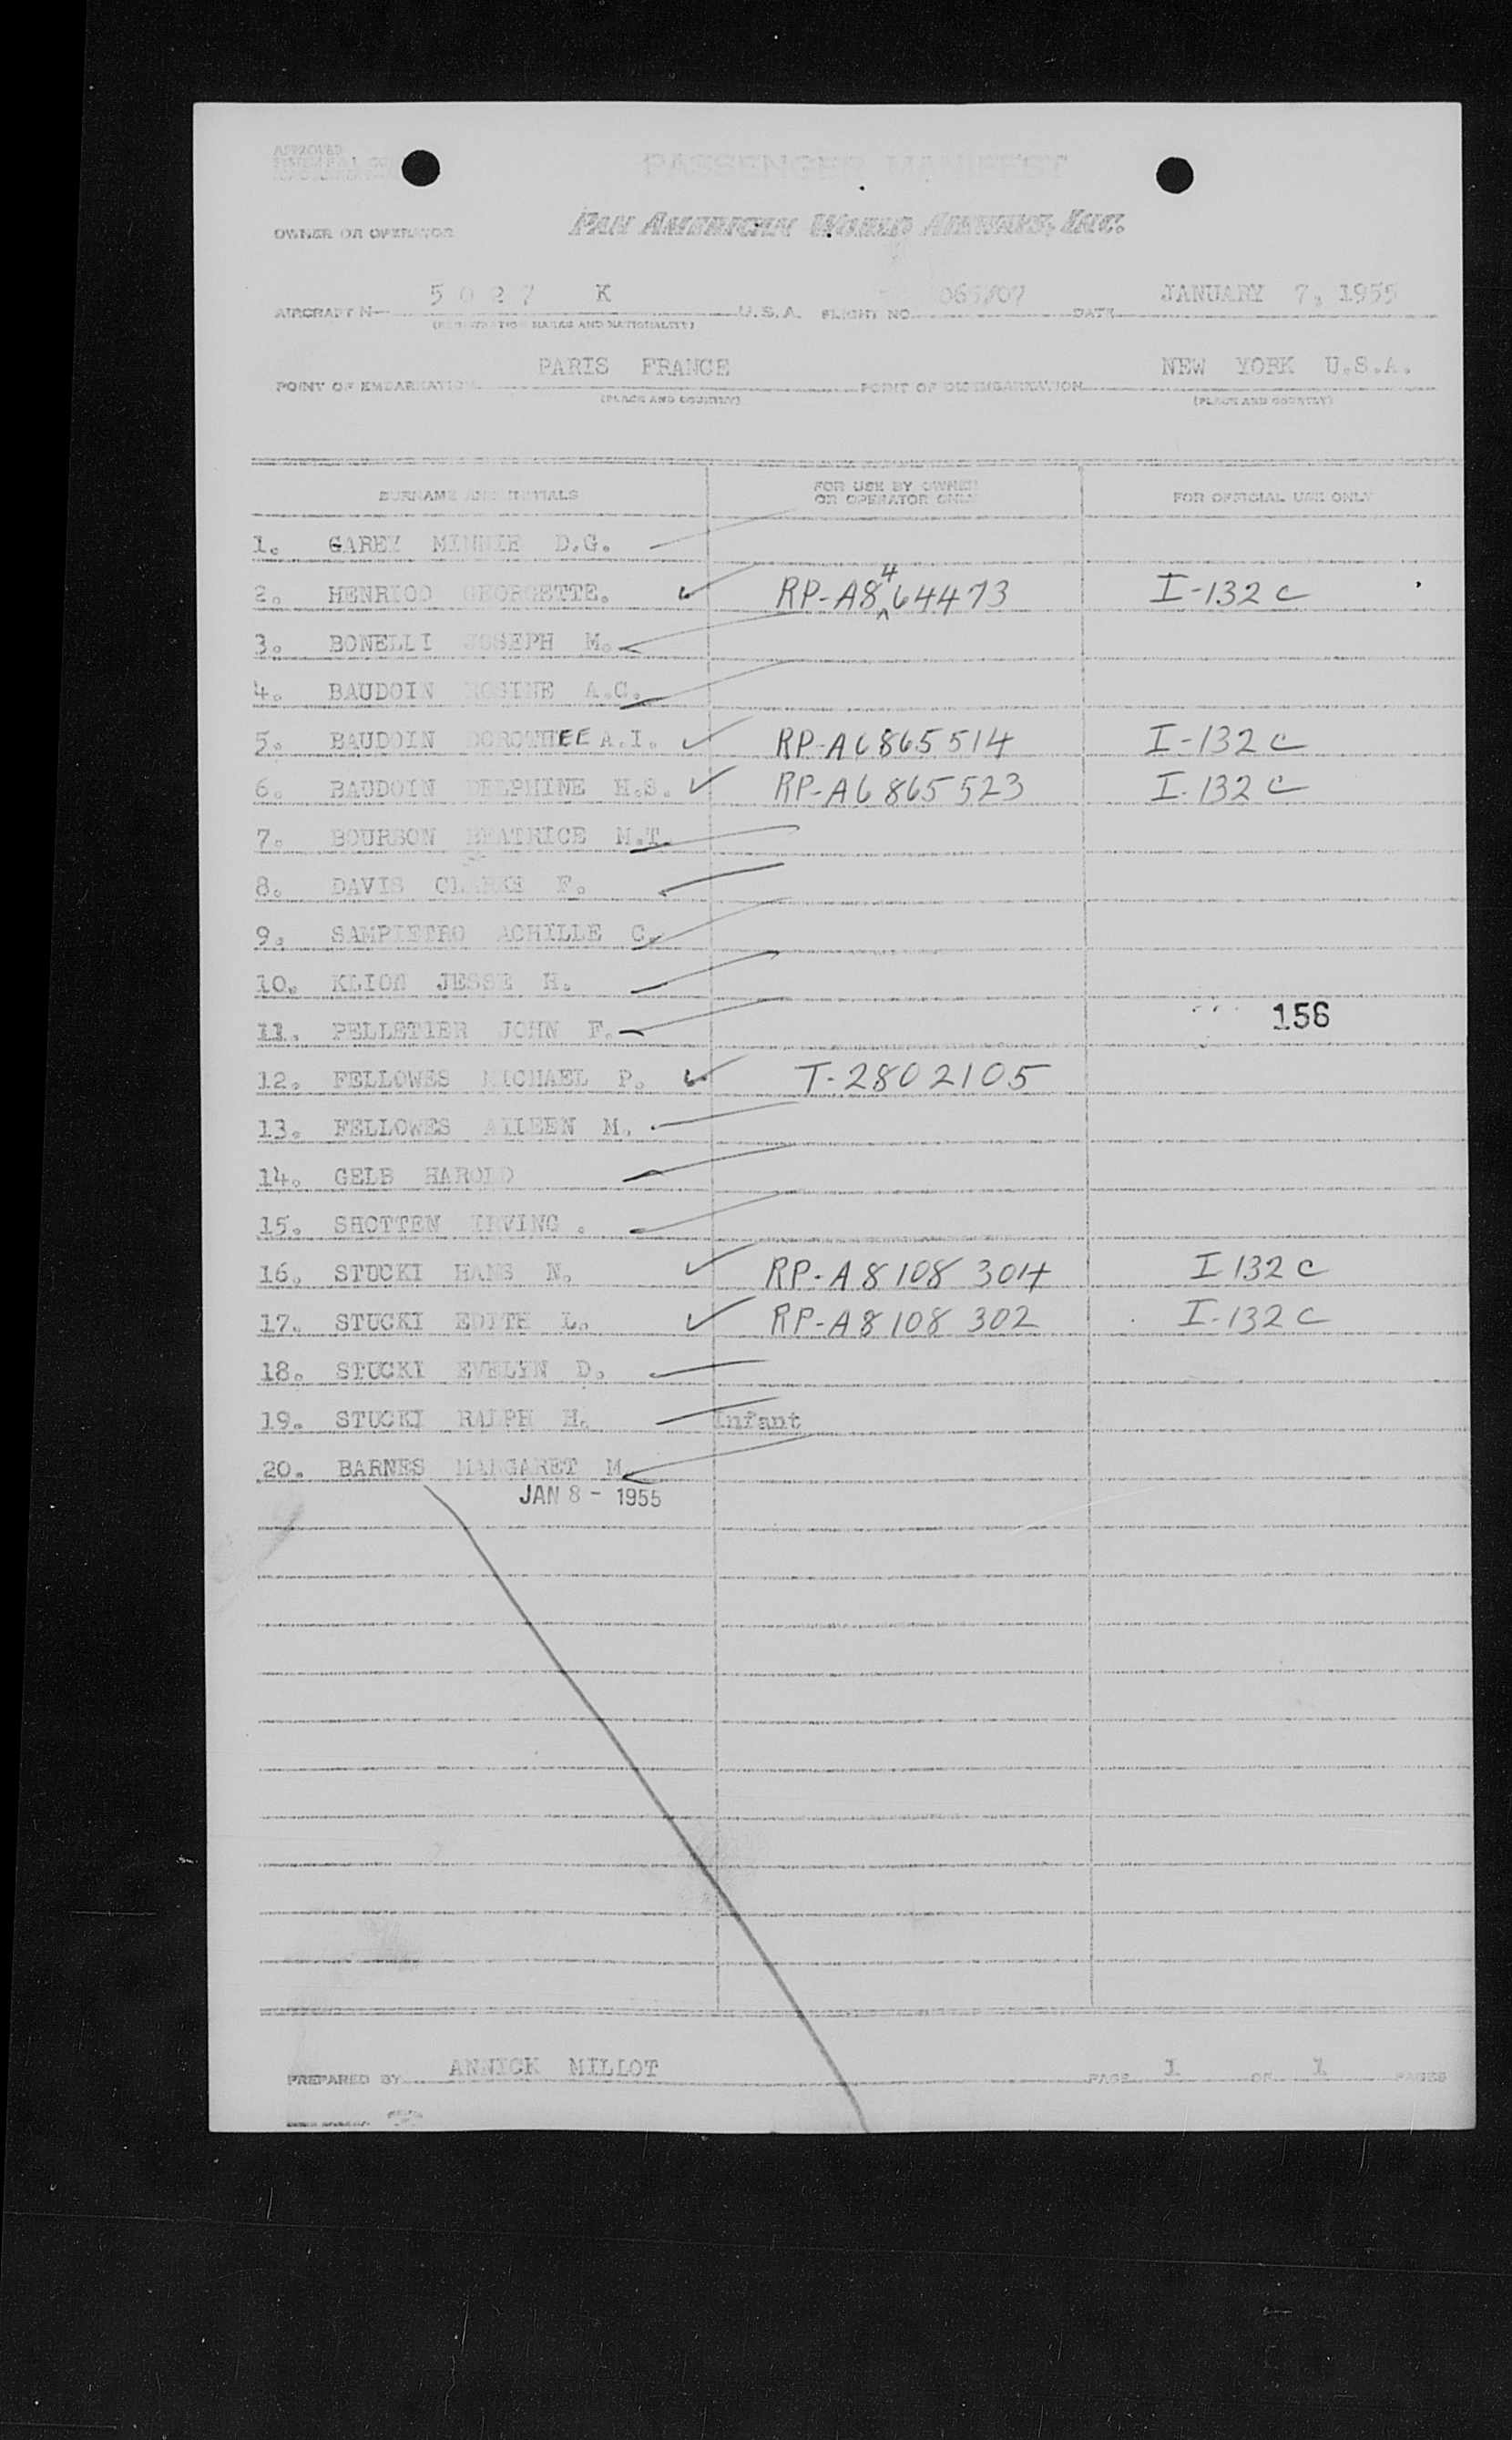 APPROVED
PASSENGER MANIFEST
OWNER OR OPERATOR PAN AMERICAN WORLD AIRWAYS, INC.
AIRCRAFT N- 5027 K U.S.A. FLIGHT NO. 065/07 DATE JANUARY 7, 1955
(REGISTRATION MARKS AND NATIONALITY)
POINT OF EMBARKATION PARIS FRANCE POINT OF DISEMBARKATION NEW YORK U.S.A.
(PLACE AND COUNTRY) (PLACE AND COUNTRY)
SURNAME AND INITIALS FOR USE BY OWNER OR OPERATOR ONLY FOR OFFICIAL USE ONLY
1. GAREY MINNIE D.G.
2. HENRIOD GEORGETTE. RP-A8464473 I-132 c
3. BONELLI JOSEPH M.
4. BAUDOIN ROSINE A.C.
5. BAUDOIN DOROTHEE A.I. RP-A6865514 I-132 c
6. BAUDOIN DELPHINE H.S. RP-A6865523 I-132 c
7. BOURBON BEATRICE M.T.
8. DAVIS CLARKE F.
9. SAMPIETRO ACHILLE C.
10. KLION JESSE H.
11. PELLETIER JOHN F. 156
12. FELLOWES MICHAEL P. T-2802105
13. FELLOWES AILEEN M.
14. GELB HAROLD
15. SHOTTEN IRVING .
16. STUCKI HANS N. RP-A8108 304 I 132 c
17. STUCKI EDITH L. RP-A8108 302 I-132 c
18. STUCKI EVELYN D.
19. STUCKI RALPH H. infant
20. BARNES MARGARET M.
JAN 8 - 1955
PREPARED BY ANNICK MILLOT PAGE 1 OF 1 PAGES